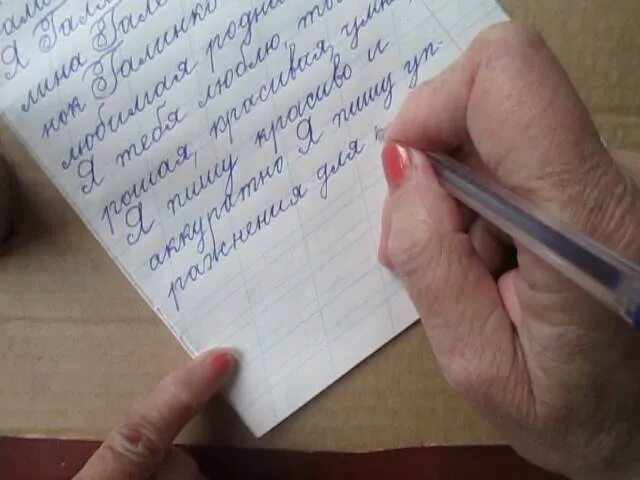 Я Галя
лина Гале
нок Галинко
любимая родна
Я тебя люблю, то
рошая, красивая, умн
Я пишу красиво и
аккуратно Я пишу уп-
ражнения для